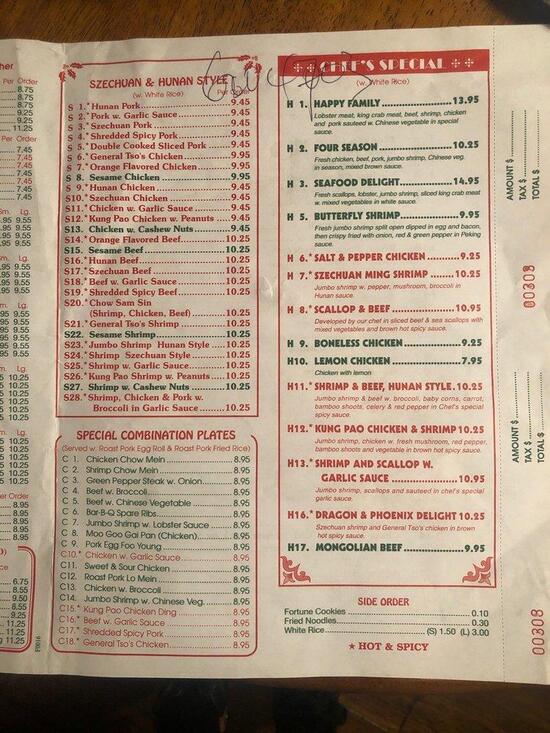 her
Per Order
8.75
8.75
9.25
9.25
11.25
Per Order
7.45
7.45
7.45
7.45
7.45
Sm. Lg.
.95 9.55
.95 9.55
.95 9.55
95 9.55
m. Lg.
95 9.55
95 9.55
95 9.55
m. Lg.
95 9.55
95 9.55
95 9.55
95 9.55
m. Lg.
5 10.25
5 10.25
5 10.25
5 10.25
5 10.25
er Order
8.95
8.95
8.95
8.95
6.75
8.50
8.55
8.50
11.25
11.25
11.25
F0016
SZECHUAN & HUNAN STYLE
(w. White Rice) Per Order
S 1.* Hunan Pork 9.45
S 2.* Pork w. Garlic Sauce 9.45
S 3.* Szechuan Pork 9.45
S 4.* Shredded Spicy Pork 9.45
S 5.* Double Cooked Sliced Pork 9.45
S 6.* General Tso's Chicken 9.95
S 7.* Orange Flavored Chicken 9.95
S 8. Sesame Chicken 9.95
S 9.* Hunan Chicken 9.45
S10.* Szechuan Chicken 9.45
S11.* Chicken w. Garlic Sauce 9.45
S12.* Kung Pao Chicken w. Peanuts 9.45
S13. Chicken w. Cashew Nuts 9.45
S14.* Orange Flavored Beef 10.25
S15. Sesame Beef 10.25
S16.* Hunan Beef 10.25
S17.* Szechuan Beef 10.25
S18.* Beef w. Garlic Sauce 10.25
S19.* Shredded Spicy Beef 10.25
S20.* Chow Sam Sin
(Shrimp, Chicken, Beef) 10.25
S21.* General Tso's Shrimp 10.25
S22. Sesame Shrimp 10.25
S23.* Jumbo Shrimp Hunan Style 10.25
S24.* Shrimp Szechuan Style 10.25
S25.* Shrimp w. Garlic Sauce 10.25
S26.* Kung Pao Shrimp w. Peanuts 10.25
S27. Shrimp w. Cashew Nuts 10.25
S28.* Shrimp, Chicken & Pork w.
Broccoli in Garlic Sauce 10.25
SPECIAL COMBINATION PLATES
(Served w. Roast Pork Egg Roll & Roast Pork Fried Rice)
C 1. Chicken Chow Mein 8.95
C 2. Shrimp Chow Mein 8.95
C 3. Green Pepper Steak w. Onion 8.95
C 4. Beef w. Broccoli 8.95
C 5. Beef w. Chinese Vegetable 8.95
C 6. Bar-B-Q Spare Ribs 8.95
C 7. Jumbo Shrimp w. Lobster Sauce 8.95
C 8. Moo Goo Gai Pan (Chicken) 8.95
C 9. Pork Egg Foo Young 8.95
C10.* Chicken w. Garlic Sauce 8.95
C11. Sweet & Sour Chicken 8.95
C12. Roast Pork Lo Mein 8.95
C13. Chicken w. Broccoli 8.95
C14. Jumbo Shrimp w. Chinese Veg. 8.95
C15.* Kung Pao Chicken Ding 8.95
C16.* Beef w. Garlic Sauce 8.95
C17.* Shredded Spicy Pork 8.95
C18.* General Tso's Chicken 8.95
CHEF'S SPECIAL
(w. White Rice)
H 1. HAPPY FAMILY 13.95
Lobster meat, king crab meat, beef, shrimp, chicken
and pork sauteed w. Chinese vegetable in special
sauce.
H 2. FOUR SEASON 10.25
Fresh chicken, beef, pork, jumbo shrimp, Chinese veg.
in season, mixed brown sauce.
H 3. SEAFOOD DELIGHT 14.95
Fresh scallops, lobster, jumbo shrimp, sliced king crab meat
w. mixed vegetables in white sauce.
H 5. BUTTERFLY SHRIMP 9.95
Fresh jumbo shrimp split open dipped in egg and bacon,
then crispy fried with onion, red & green pepper in Peking
sauce.
H 6.* SALT & PEPPER CHICKEN 9.25
H 7.* SZECHUAN MING SHRIMP 10.25
Jumbo shrimp w. pepper, mushroom, broccoli in
Hunan sauce.
H 8.* SCALLOP & BEEF 10.95
Developed by our chef in sliced beef & sea scallops with
mixed vegetables and brown hot spicy sauce.
H 9. BONELESS CHICKEN 9.25
H10. LEMON CHICKEN 7.95
Chicken with lemon
H11.* SHRIMP & BEEF, HUNAN STYLE. 10.25
Jumbo shrimp & beef w. broccoli, baby corns, carrot,
bamboo shoots, celery & red pepper in Chef's special
spicy sauce.
H12.* KUNG PAO CHICKEN & SHRIMP 10.25
Jumbo shrimp, chicken w. fresh mushroom, red pepper,
bamboo shoots and vegetable in brown hot spicy sauce.
H13.* SHRIMP AND SCALLOP W.
GARLIC SAUCE 10.95
Jumbo shrimp, scallops and sauteed in chef's special
garlic sauce.
H16.* DRAGON & PHOENIX DELIGHT 10.25
Szechuan shrimp and General Tso's chicken in brown
hot spicy sauce.
H17. MONGOLIAN BEEF 9.95
SIDE ORDER
Fortune Cookies 0.10
Fried Noodles 0.30
White Rice (S) 1.50 (L) 3.00
★ HOT & SPICY
AMOUNT $
TAX $
TOTAL $
00308
AMOUNT $
TAX $
TOTAL $
00308